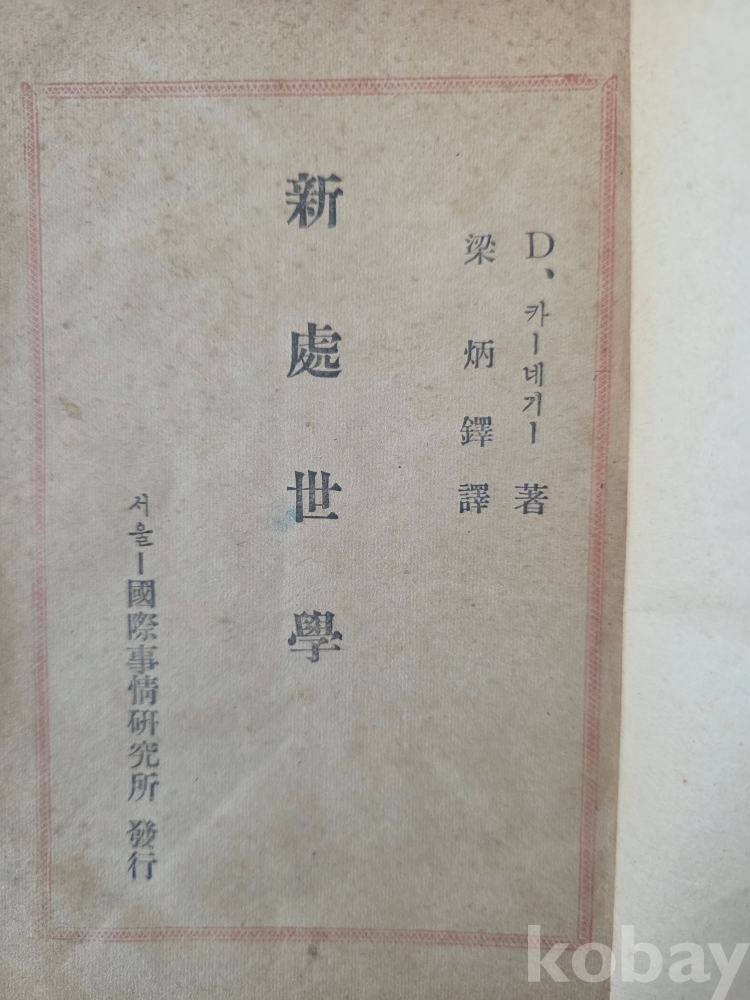 D、카ー네기ー 著
梁炳鐸 譯
新處世學
서울ー國際事情硏究所 發行
kobay